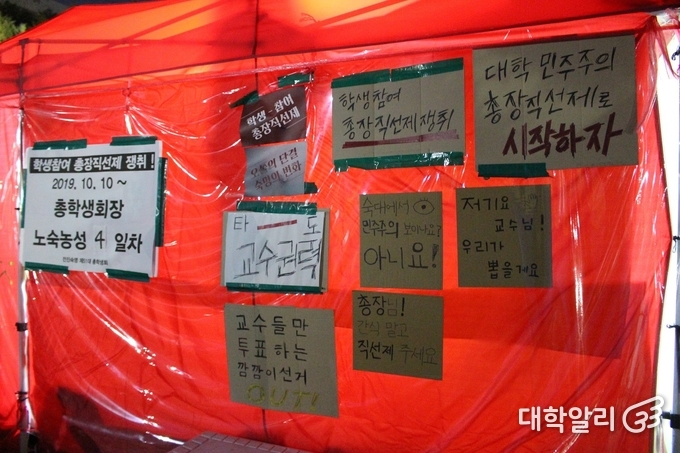 학생참여 총장직선제 쟁취!
2019. 10. 10 ~
총학생회장
노숙농성 4 일차
학생·참여
총장직선재
우독의 단결
숙명의 변화
학생참여
총장직선제 쟁취
대학 민주주의
총장직선제로
시작하자
타도
교수권력
숙대에서
민주주의 보이나요?
아니요!
저기요
교수님!
우리가
뽑을게요
교수들만
투표하는
깜깜이선거
OUT!
총장님!
간식 말고
직선제 주세요
대학알리